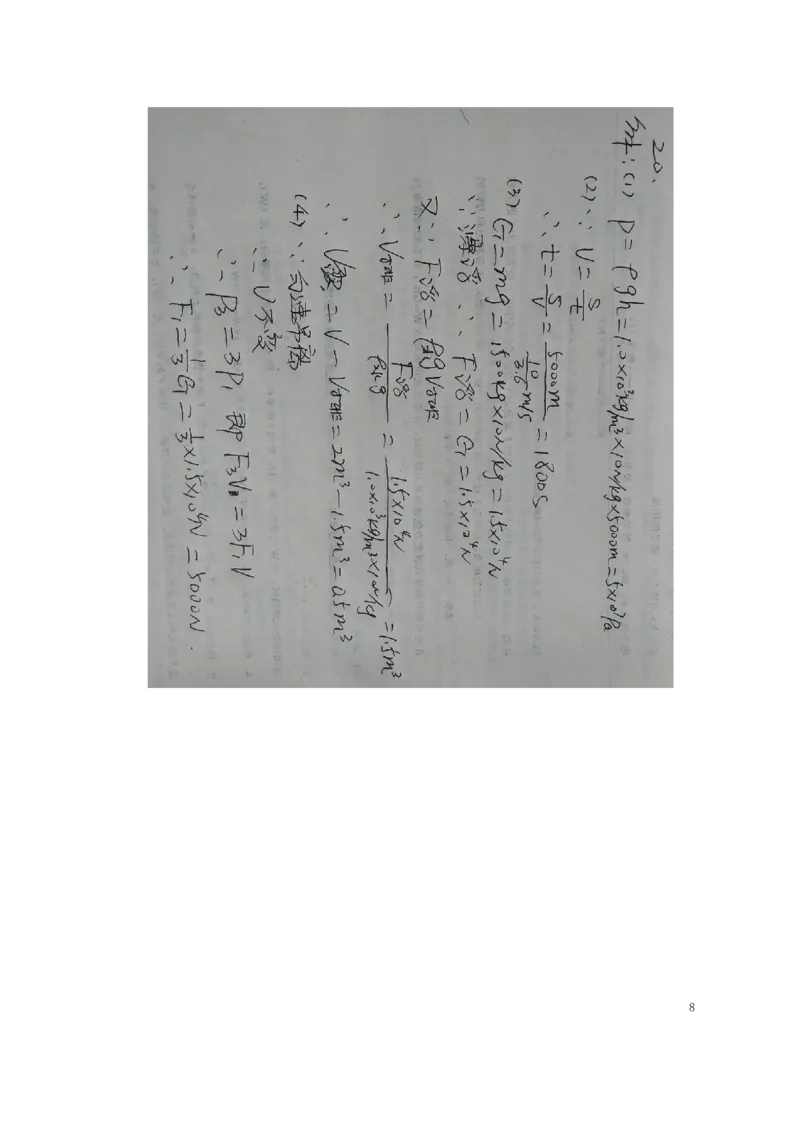 20.
解:(1) P=ρgh=1.0×10³kg/m³×10N/kg×5000m=5×10⁷Pa
(2)∵ V=s/t
∴ t=s/V=5000m/(10/3.6 m/s)=1800s
(3) G=mg=1500kg×10N/kg=1.5×10⁴N
∵漂浮 ∴F浮=G=1.5×10⁴N
又∵F浮=ρ水gV排
∴V排=F浮/ρ水g=1.5×10⁴N/1.0×10³kg/m³×10N/kg=1.5m³
∴V露=V-V排=2m³-1.5m³=0.5m³
(4)∵匀速
∴V不变
∴P₃=3P₁ 即F₃V=3F₁V
∴F₁=1/3G=1/3×1.5×10⁴N=5000N.
8